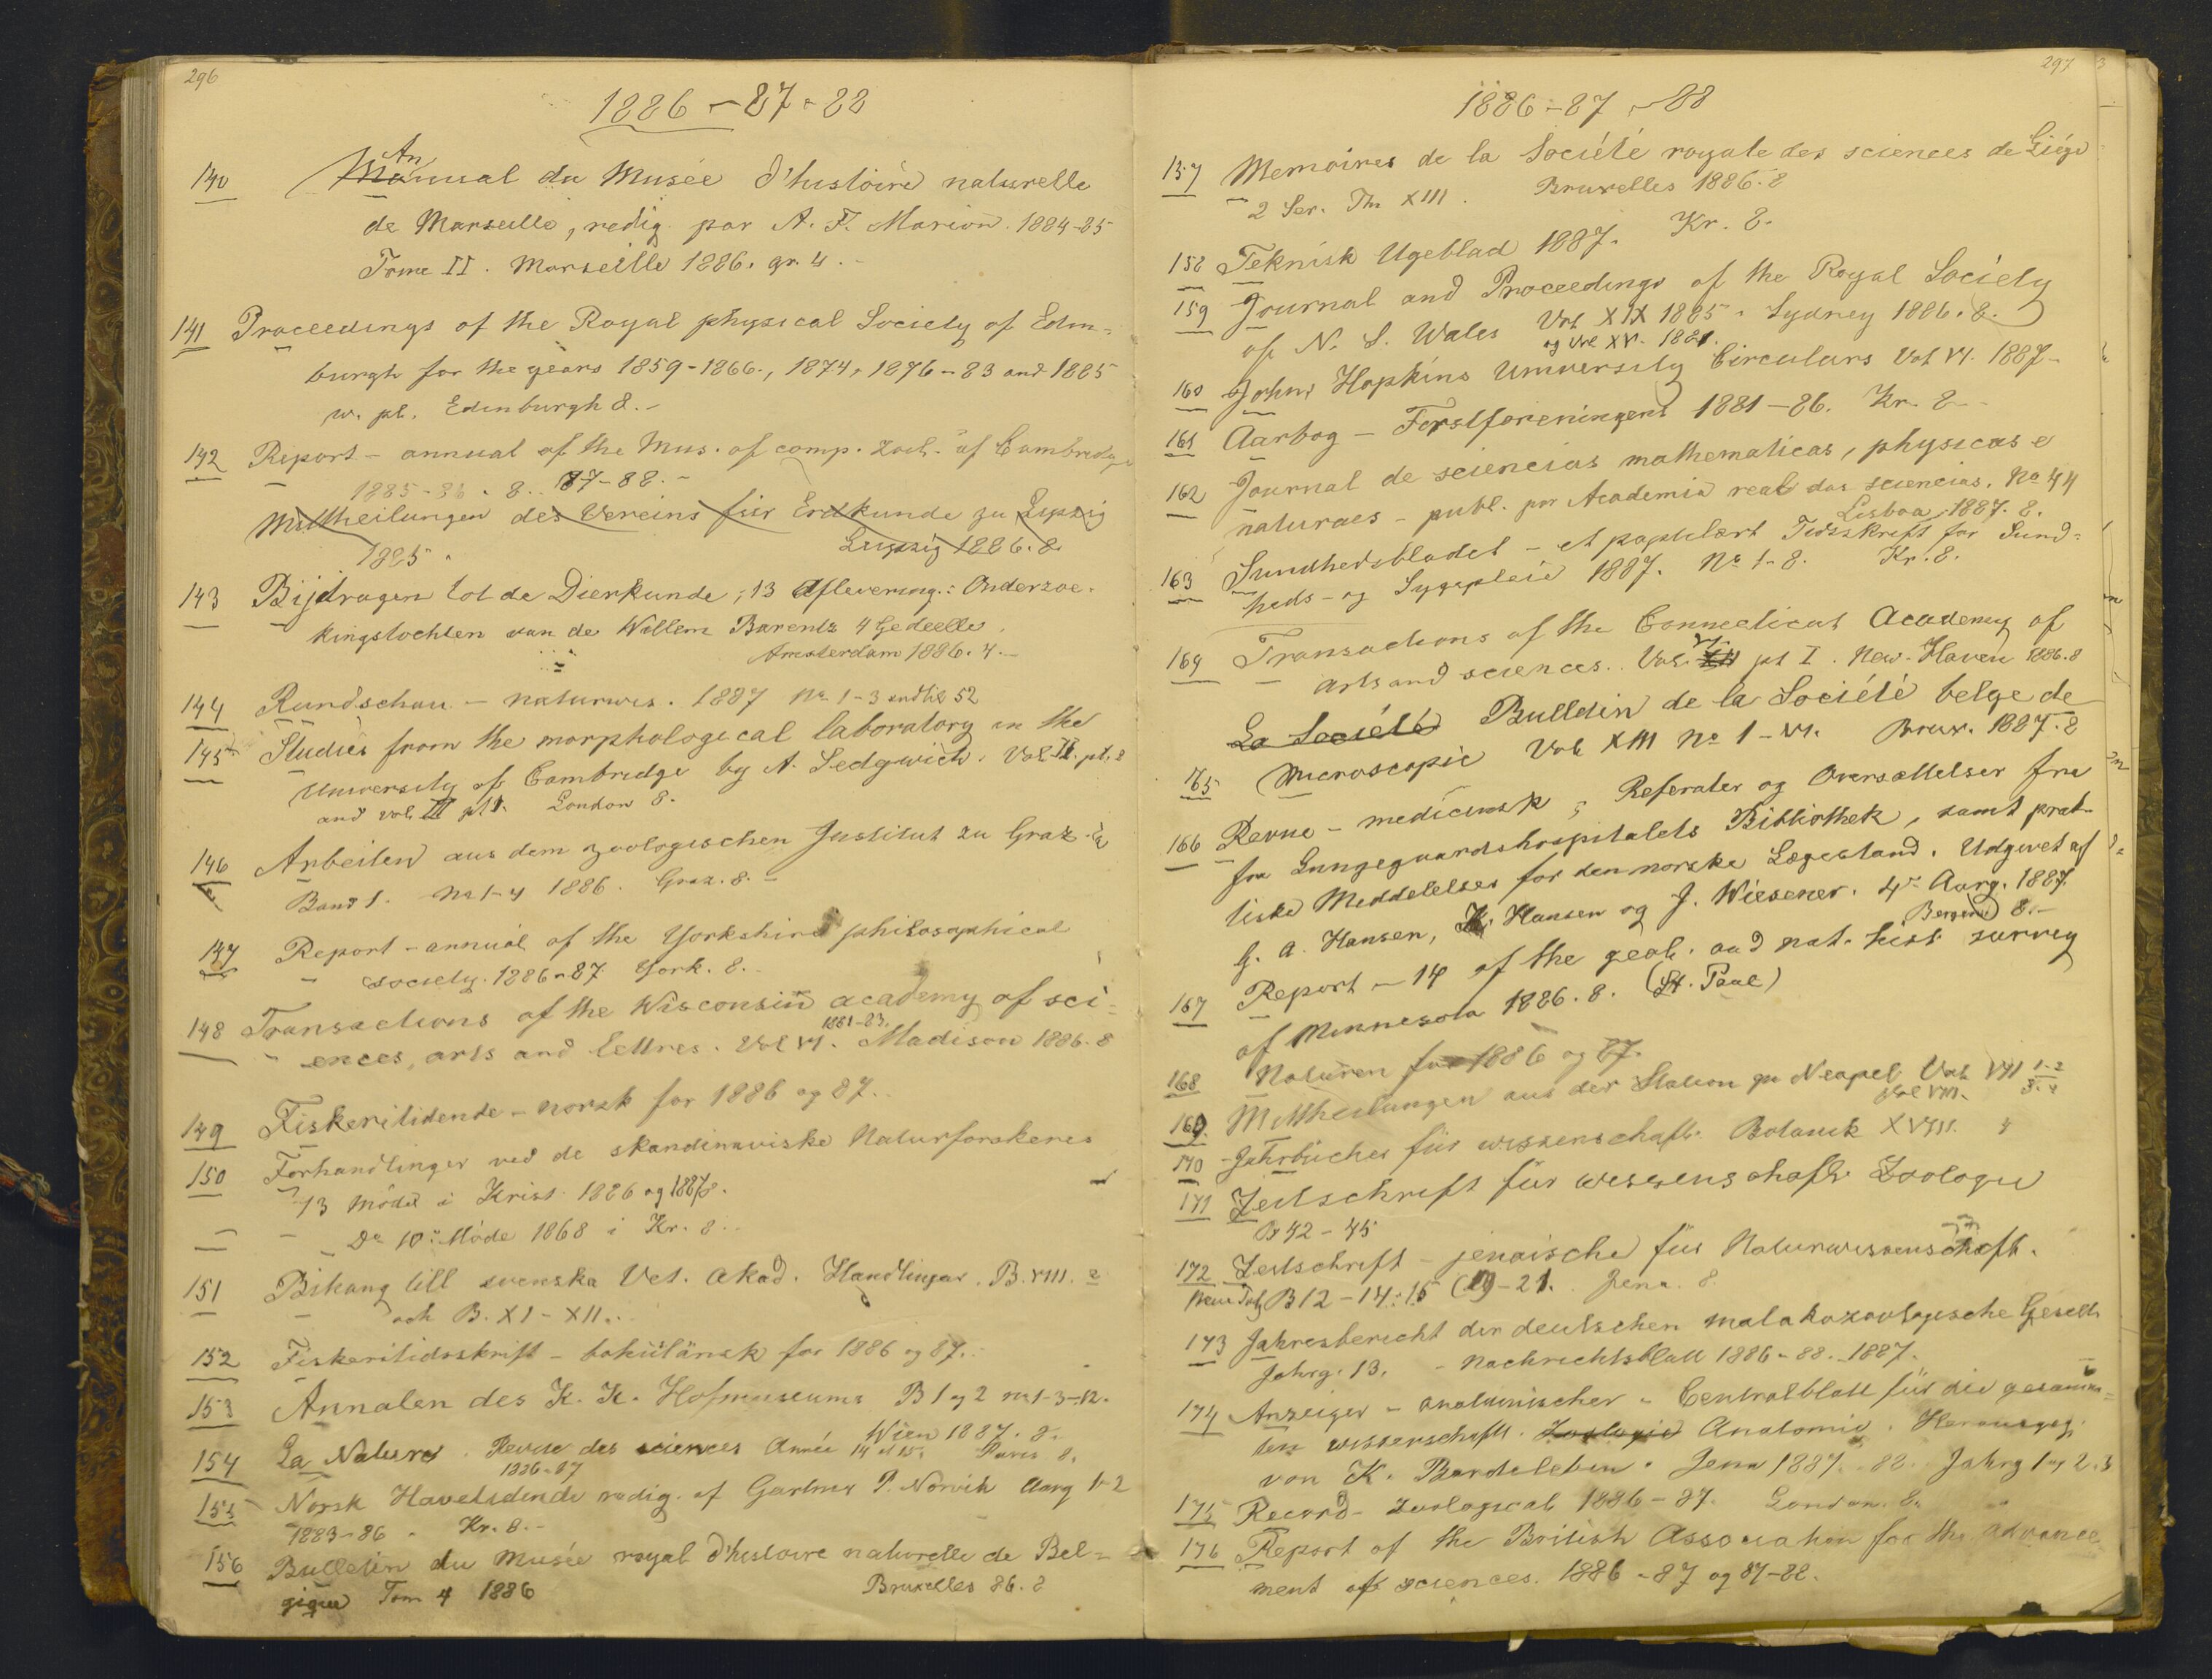 296
1886-87-88
An
140 Manual du Musée d'histoire naturelle
de Marseille, redig. par A. F. Marion. 1884-85
Tome II. Marseille 1886. gr. 4.-
141 Proceedings of the Royal physical Society of Edin=
burgh for the years 1859-1866., 1874, 1876-83 and 1885
w. pl. Edinburgh 8.-
142 Report - annual of the Mus. of comp. zool. of Cambridge
1885-86. 8.. 87-88.-
Mittheilungen des Vereins für Erdkunde zu Leipzig
1885. Leipzig 1886. 8.
143 Bijdragen tot de Dierkunde, 13 Aflevering.: Onderzoe-
kingstochten van de Willem Barents 4 Gedeelte.
Amsterdam 1886. 4.-
144 Rundschau - naturwis. 1887 No 1-3 indtil 52
145 Studies from the morphological laboratory in the
University of Cambridge by A. Sedgwich. Vol II. pt. 2
and vol III pt 1. London 8.
146 Arbeiten aus dem zoologischen Institut zu Graz.
Band 1. No 1-4 1886. Graz. 8.-
147 Report - annual of the Yorkshire philosophical
society. 1886-87. York. 8.-
148 Transactions of the Wisconsin academy of sci=
1881-83.
ences, arts and lettres. Vol VI. Madison 1886. 8
149 Fiskeritidende - norsk for 1886 og 87..
150 Forhandlinger ved de skandinaviske Naturforskeres
13 Möde i Krist. 1886 og 1887 8.
Do 10: Möde 1868 i Kr. 8..
151 Bihang till svenska Vet. Akad. Handlingar. B. VIII. 2
och B. XI-XII..
152 Fiskeritidsskrift - bohuslänsk for 1886 og 87..
153 Annalen des K. K. Hofmuseums B 1 og 2 no 1-3-12.
Wien 1887. 8.
154 La Nature. Revue des sciences Année 14 et 15. Paris 8.
1886-87
155 Norsk Havetidende redig. af Gartner P. Nøvik Aarg 1-2
1883-86. Kr. 8.-
156 Bulletin du Musée royal d'histoire naturelle de Bel=
gique Tom 4 1886 Bruxelles 86. 8
297
1886-87-88
157 Memoires de la Société royale des sciences de Liége
2 Ser. Tm XIII. Bruxelles 1886. 8
158 Teknisk Ugeblad 1887. Kr. 8.
159 Journal and Proceedings of the Royal Society
of N. S. Wales Vol XIX 1885. Sydney 1886. 8.
og Vol XV. 1881.
160 Johns Hopkins University Circulars Vol VI. 1887-
161 Aarbog - Forstforeningens 1881-86. Kr. 8-
162 Journal de sciencias mathematicas, physicas e
naturaes - publ. por Academia real das sciencias. No 44
Lisboa 1887. 8.
163 Sundhedsbladet - et populært Tidsskrift for Sund=
heds- og Sygepleie 1887. No 1-8. Kr. 8.
164 Transactions of the Connecticut Academy of
arts and sciences. Vol. VII pt I. New-Haven 1886. 8
La Société Bulletin de la Société belge de
165 Microscopie Vol XIII No 1-VI. Brux. 1887. 8
166 Revue - medicinsk; Referater og Oversættelser fra
fra Lungegaardshospitalets Bibliothek, samt prak-
tiske Meddelelser for den norske Lægestand. Udgivet af
G. A. Hansen, K. Hansen og J. Wiesener. 4de Aarg. 1887.
Bergen 8.-
167 Report - 14 of the geol. and nat. hist. survey
of Minnesota 1886. 8. (St. Paul)
168 Naturen for 1886 og 87.
169. Mittheilungen aus der Station zu Neapel Vol VII 1-2
Vol VIII. 3.4
170 Jahrbücher für wissenschaftl. Botanik XVIII. 4
171 Zeitschrift für wissenschaftl. Zoologie
B 42-45
172 Zeitschrift - jenaische für Naturwissenschaft.
Neue Folg. B 12-14. 15 (19-21. Jena. 8.
173 Jahresbericht der deutschen malakozoologische Gesells
Jahrg. 13. - Nachrichtsblatt 1886-88.-1887.
174 Anzeiger - anatomischer - Centralblatt für die gesamm=
ten wissenschaftl. Zoologie Anatomie. Herausgeg.
von K. Bardeleben. Jena 1887. 88. Jahrg 1 og 2.3
175 Record - zoological 1886-87. London. 8.
176 Report of the British Association for the advance
ment of sciences. 1886-87 og 87-88.